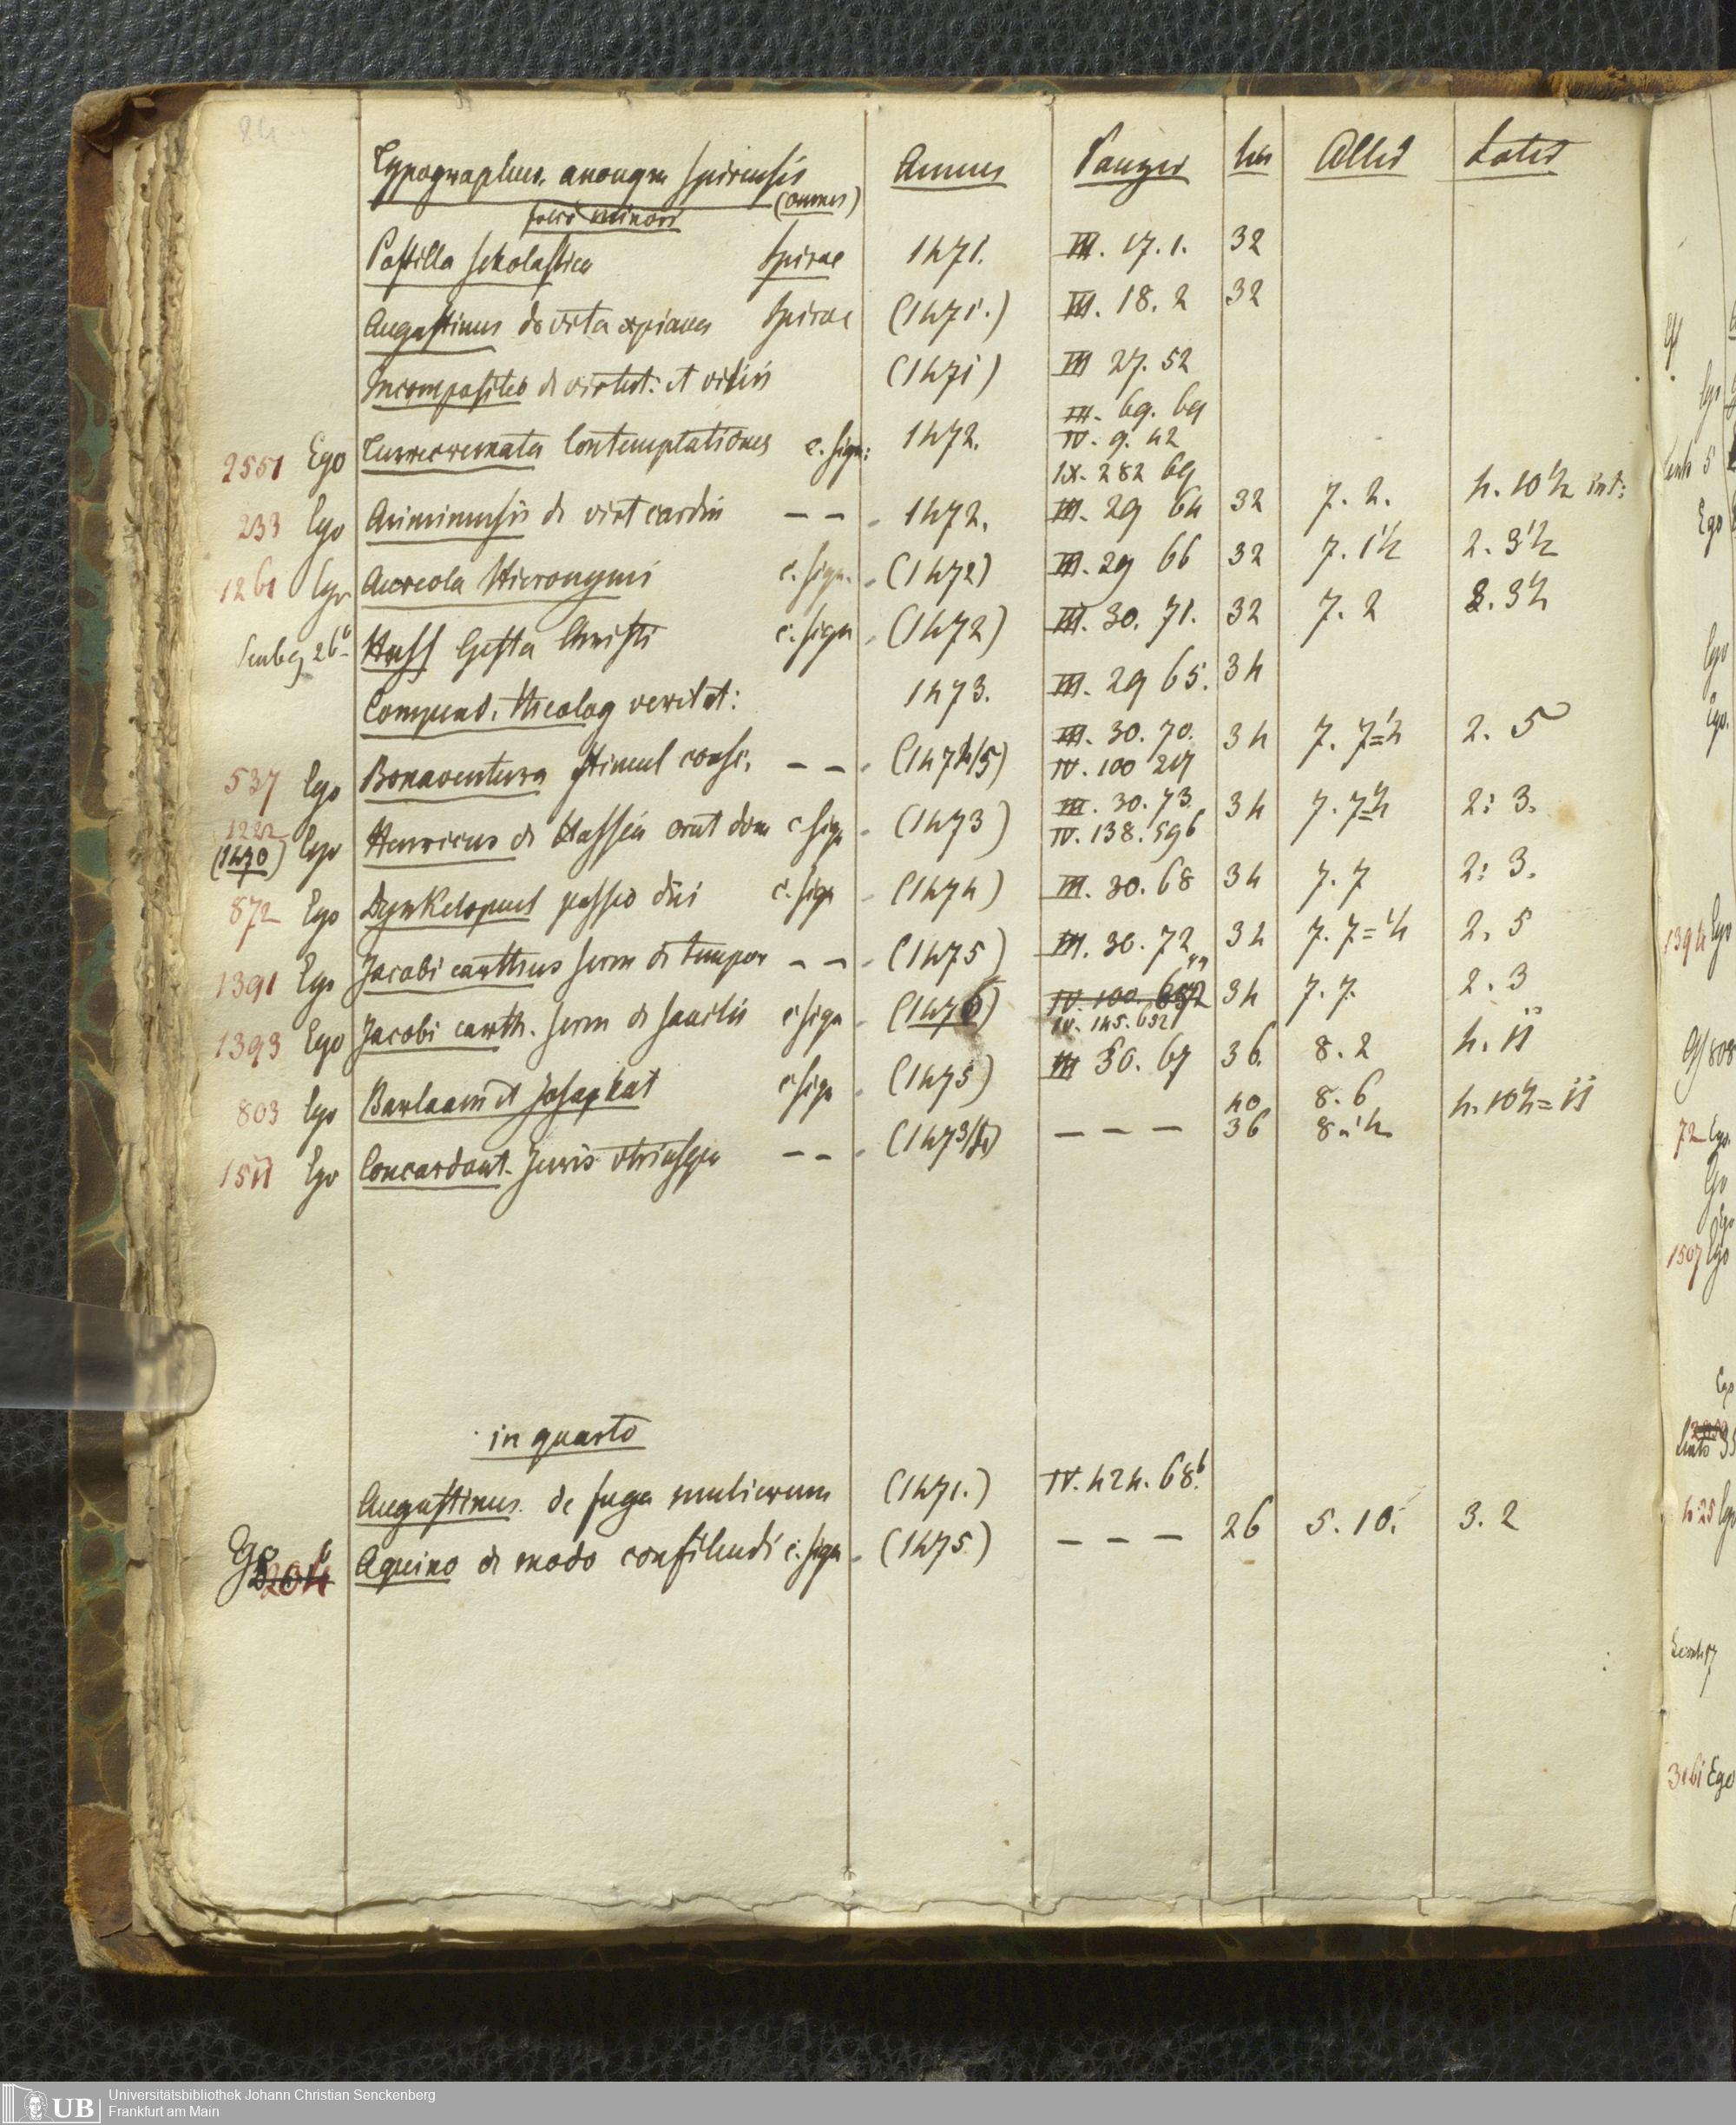 24
Typographus. anonym Spirensis Annus Panzer lin Altid Latid
(omnes)
folio minori
Postilla scholastica Spirae 1471. III. 17. 1. 32
Augustinus de vita xpiana Spirae (1471.) III. 18. 2 32
Incompositus de virtut: et vitiis (1471) III 27. 52
2551 Ego Turrecremata Contemplationes c. sign: 1472. III. 69. 69
IV. 9. 42
IX. 282 69
233 Ego Ariminensis de virt cardin – – . 1472. III. 29 64 32 7. 2. 4. 10½ int:
1261 Ego Aureola Hieronymi c. sign. . (1472) III. 29 66 32 7. 1½ 2. 3½
Senbg 26 Huss Gesta Christi c. sign . (1472) III. 30. 71. 32 7. 2 2. 3½
Compend. theolog veritat: 1473. III. 29 65. 34
537 Ego Bonaventura stimul consc. – – . (1474/5) III. 30. 70. 34 7. 7=½ 2. 5
IV. 100 217
1222 (1470) Ego Henricus de Hassia orat dom c sign . (1473) III. 30. 73 34 7. 7=½ 2: 3.
IV. 138. 596
872 Ego Dynkelspuel passio dni c. sign . (1474) III. 30. 68 34 7. 7 2: 3.
1391 Ego Jacobi carthus serm de tempor – – . (1475) III. 30. 72 34 7. 7=½ 2. 5
1393 Ego Jacobi carth. serm de sanctis c sign . (1476) IV. 100. 34 7. 7. 2. 3
IV. 145. 652
803 Ego Barlaam et Josaphat c sign . (1475) III 30. 67 36. 8. 2 4. 11
1511 Ego Concordant. Juris utriusque – – . (1473/4) – – – 40 8. 6 4. 10½=11
36 8-½
in quarto
Augustinus. de fuga mulierum (1471.) IV. 424. 68b.
Ego 204 Aquino de modo confitendi c. sign . (1475) – – – 26 5. 10. 3. 2
Ego
1394 Ego
1507 Ego
425 Ego
Ego
UB
Universitätsbibliothek Johann Christian Senckenberg
Frankfurt am Main